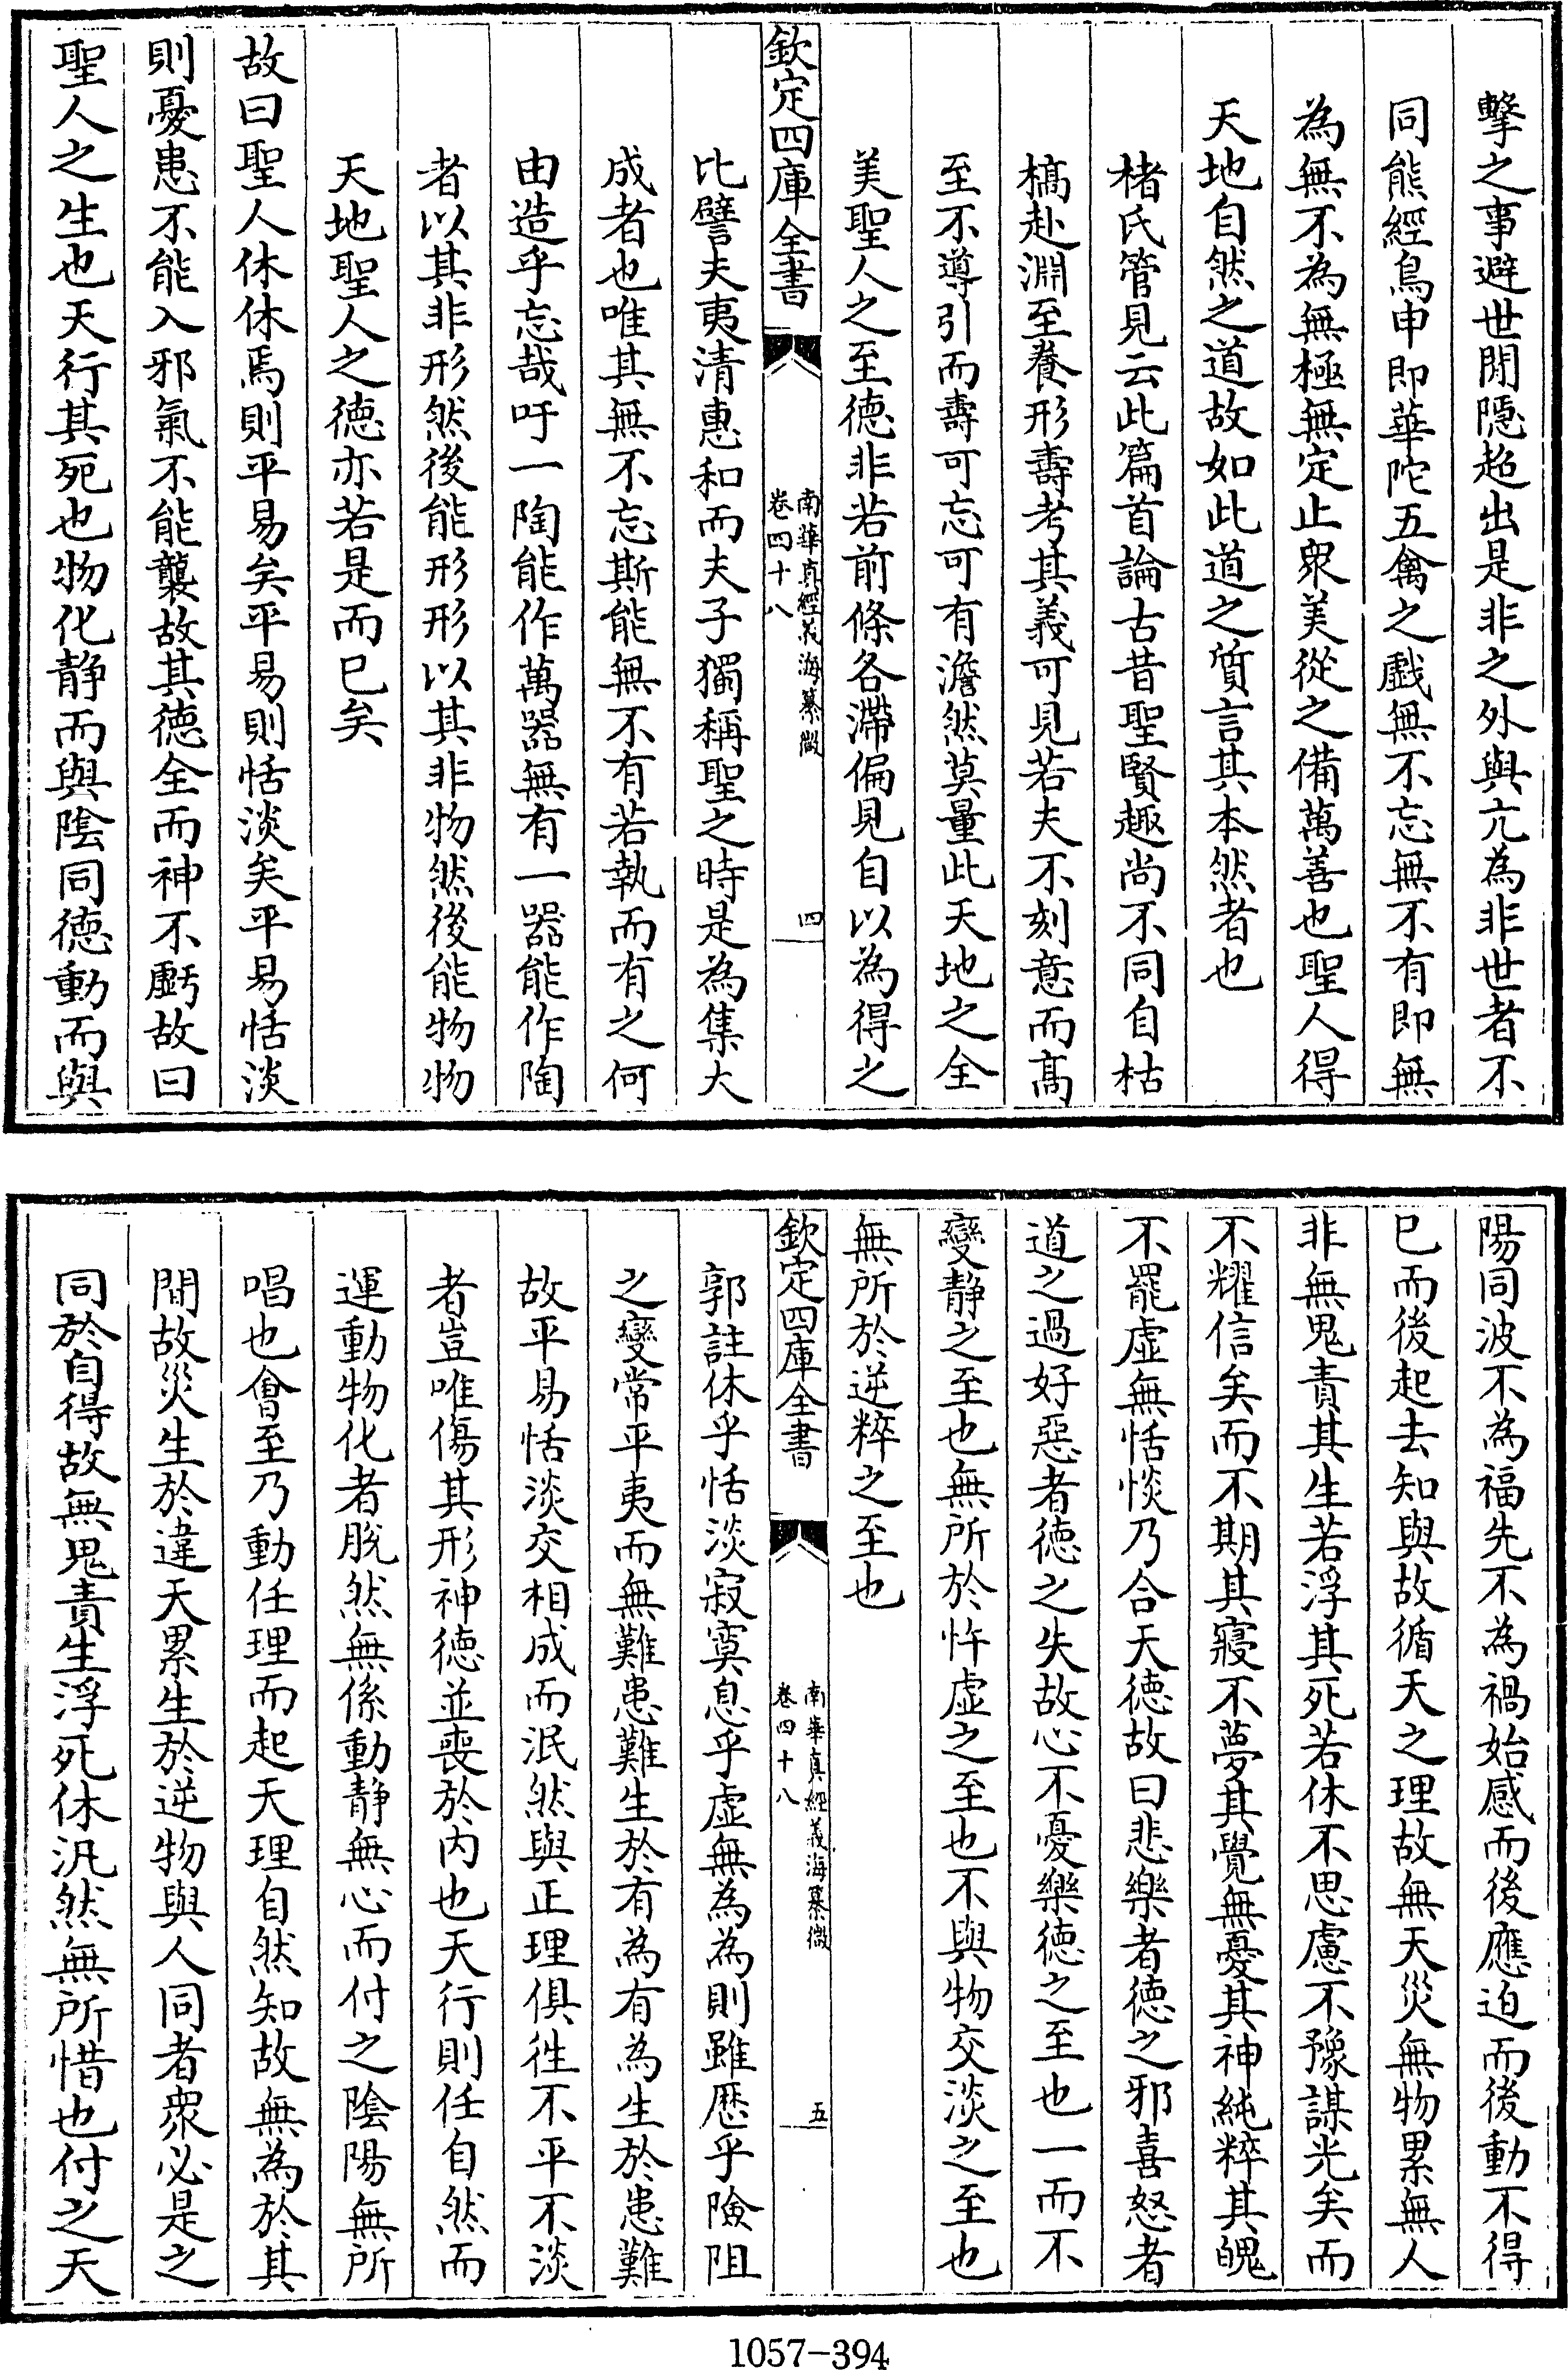 擊之事避世閒隱超出是非之外與亢為非世者不
同熊經鳥申即華陀五禽之戲無不忘無不有即無
為無不為無極無定止衆美從之備萬善也聖人得
天地自然之道故如此道之質言其本然者也
楮氏管見云此篇首論古昔聖賢趣尚不同自枯
槁赴淵至養形壽考其義可見若夫不刻意而髙
至不導引而壽可忘可有澹然莫量此天地之全
美聖人之至德非若前條各滯偏見自以為得之
欽定四庫全書
南華真經義海纂微
卷四十八
四
比譬夫夷清惠和而夫子獨稱聖之時是為集大
成者也唯其無不忘斯能無不有若執而有之何
由造乎忘哉吁一陶能作萬器無有一器能作陶
者以其非形然後能形形以其非物然後能物物
天地聖人之德亦若是而已矣
故曰聖人休休焉則平易矣平易則恬淡矣平易恬淡
則憂患不能入邪氣不能襲故其德全而神不虧故曰
聖人之生也天行其死也物化静而與陰同德動而與
陽同波不為福先不為禍始感而後應迫而後動不得
已而後起去知與故循天之理故無天災無物累無人
非無鬼責其生若浮其死若休不思慮不豫謀光矣而
不耀信矣而不期其寢不夢其覺無憂其神純粹其魄
不罷虛無恬惔乃合天德故曰悲樂者德之邪喜怒者
道之過好惡者德之失故心不憂樂德之至也一而不
變静之至也無所於忤虛之至也不與物交淡之至也
無所於逆粹之至也
欽定四庫全書
南華真經義海纂微
卷四十八
五
郭註休乎恬淡寂寞息乎虛無為為則雖歷乎險阻
之變常平夷而無難患難生於有為有為生於患難
故平易恬淡交相成而泯然與正理俱徃不平不淡
者豈唯傷其形神德並喪於内也天行則任自然而
運動物化者脫然無係動静無心而付之陰陽無所
唱也會至乃動任理而起天理自然知故無為於其
間故災生於違天累生於逆物與人同者衆必是之
同於自得故無鬼責生浮死休汎然無所惜也付之天
1057-394